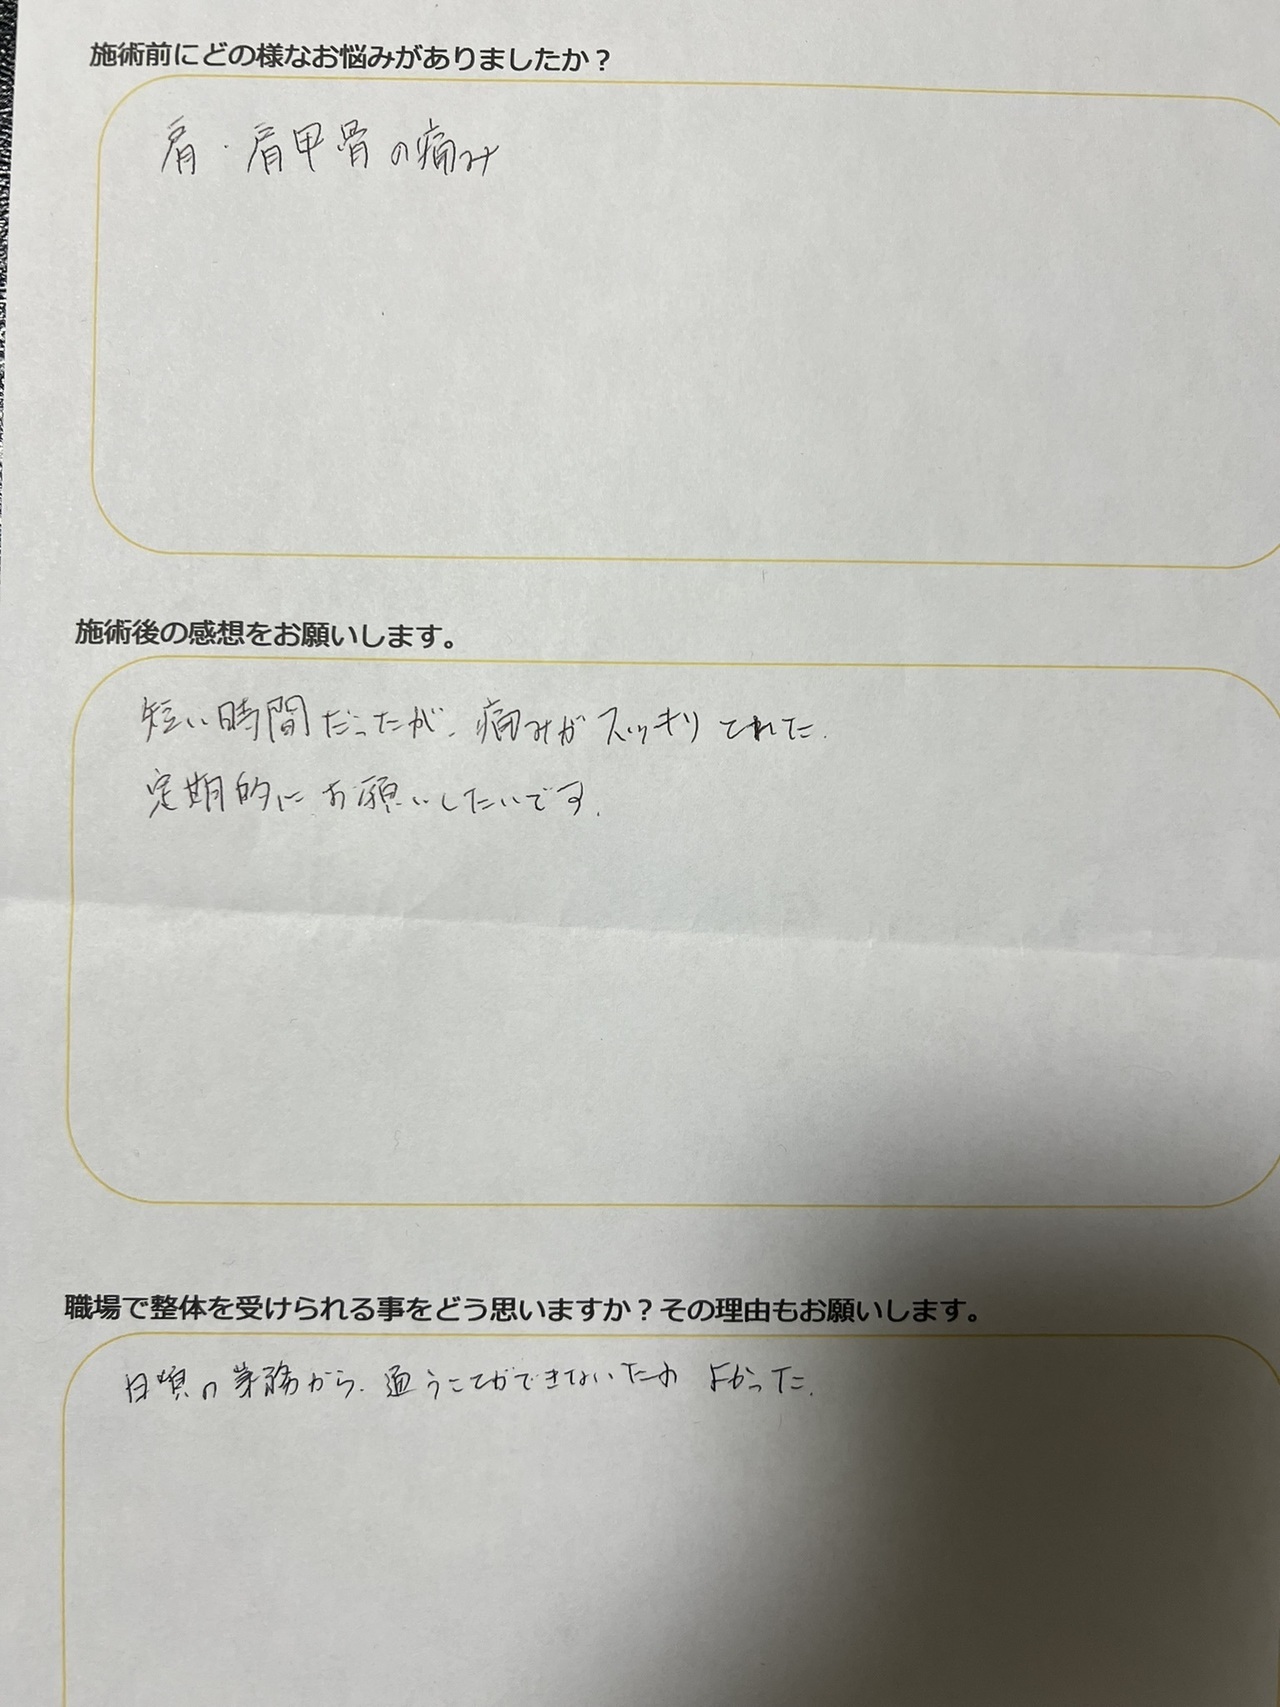 施術前にどの様なお悩みがありましたか？
肩・肩甲骨の痛み
施術後の感想をお願いします。
短い時間だったが、痛みがスッキリとれた.
定期的にお願いしたいです.
職場で整体を受けられる事をどう思いますか？その理由もお願いします。
日頃の業務から、通うことができないため よかった.